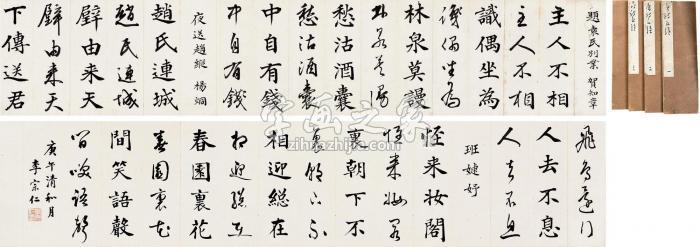 題袁氏別業 賀知章
主人不相
主人不相
識偶坐為
識偶坐為
林泉莫謾
林泉莫謾
愁沽酒囊
愁沽酒囊
中自有錢
中自有錢
夜送趙縱 楊炯
趙氏連城
趙氏連城
璧由來天
璧由來天
下傳送君
飛鳥還行
人去不息
人去不息
班婕妤
怪來妝閣
怪來妝閣
裏朝下不
裏朝下不
相迎總在
相迎總在
春園裏花
春園裏花
間笑語聲
間笑語聲
庚午清和月
李宗仁
字画之家
zihuazhijia.com